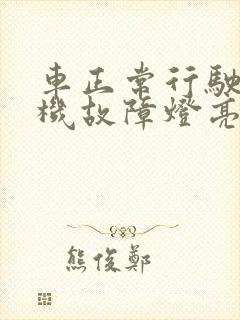 車正常行駛
機故障燈亮
熊俊鄭